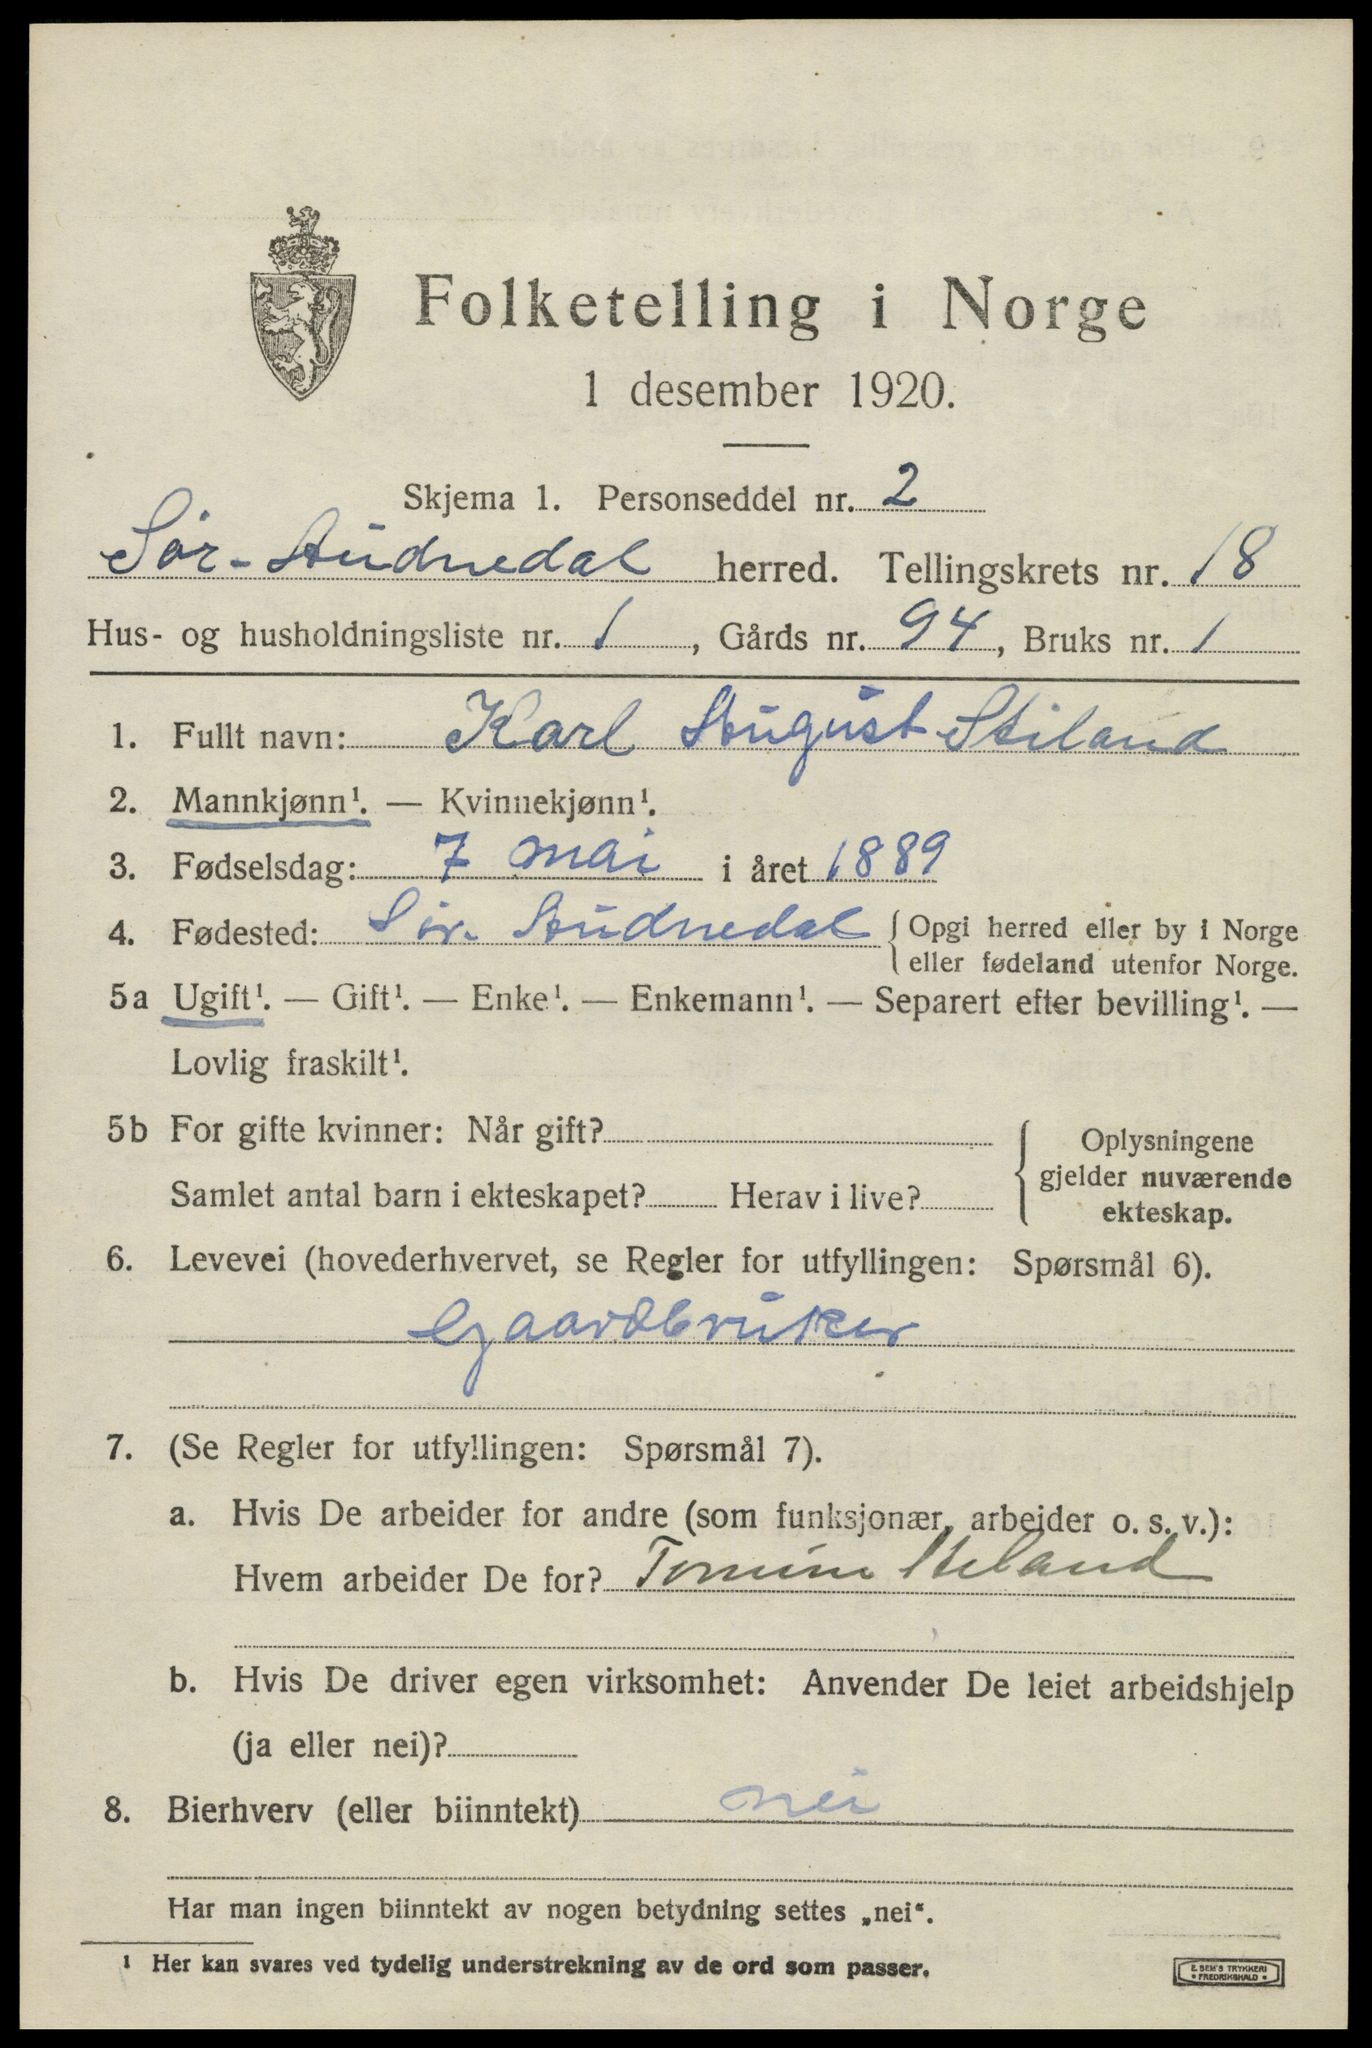 Folketelling i Norge
1 desember 1920.
Skjema 1. Personseddel nr. 2
Sør-Audnedal herred. Tellingskrets nr. 18
Hus- og husholdningsliste nr. 1, Gårds nr. 94, Bruks nr. 1
1. Fullt navn: Karl August Stiland
2. Mannkjønn¹. — Kvinnekjønn¹.
3. Fødselsdag: 7 mai i året 1889
4. Fødested: Sør-Audnedal { Opgi herred eller by i Norge
eller fødeland utenfor Norge.
5a Ugift¹. — Gift¹. — Enke¹. — Enkemann¹. — Separert efter bevilling¹. —
Lovlig fraskilt¹.
5b For gifte kvinner: Når gift? { Oplysningene
gjelder nuværende
Samlet antal barn i ekteskapet? Herav i live?
ekteskap.
6. Levevei (hovederhvervet, se Regler for utfyllingen: Spørsmål 6).
Gaardbruker
7. (Se Regler for utfyllingen: Spørsmål 7).
a. Hvis De arbeider for andre (som funksjonær, arbeider o. s. v.):
Hvem arbeider De for? Stiland
b. Hvis De driver egen virksomhet: Anvender De leiet arbeidshjelp
(ja eller nei)?
8. Bierhverv (eller biinntekt) nei
Har man ingen biinntekt av nogen betydning settes „nei“.
¹ Her kan svares ved tydelig understrekning av de ord som passer.
E. SEM'S TRYKKERI
• FREDRIKSHALD •